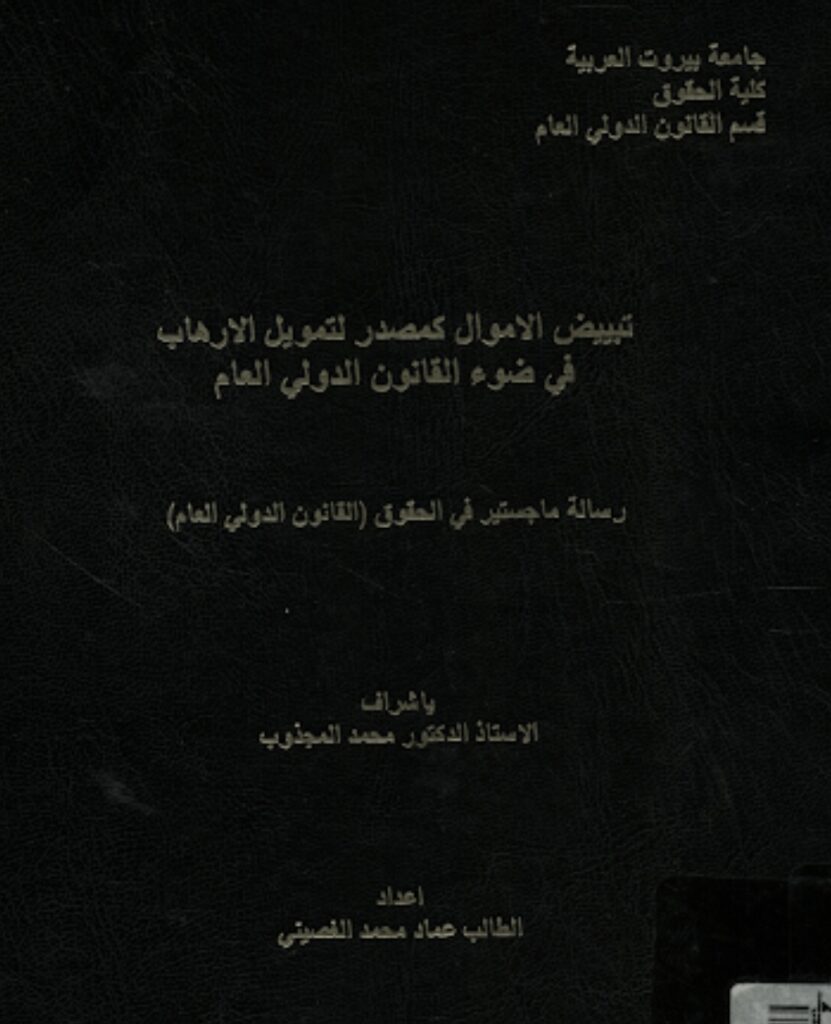 جامعة بيروت العربية
كلية الحقوق
قسم القانون الدولي العام
تبييض الاموال كمصدر لتمويل الارهاب
في ضوء القانون الدولي العام
رسالة ماجستير في الحقوق (القانون الدولي العام)
باشراف
الاستاذ الدكتور محمد المجذوب
اعداد
الطالب عماد محمد